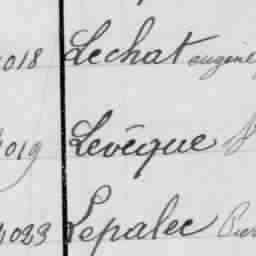 018 Lechat eugène
019 Levêque
023 Lepalec